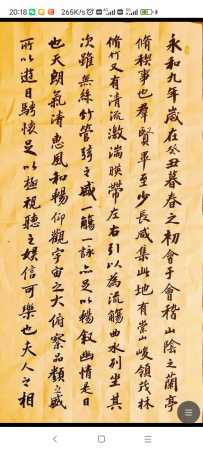 20:18
265K/s
永和九年歲在癸丑暮春之初會于會稽山陰之蘭亭
脩稧事也羣賢畢至少長咸集此地有崇山峻領茂林
脩竹又有清流激湍暎帶左右引以為流觴曲水列坐其
次雖無絲竹管弦之盛一觴一詠亦足以暢敘幽情是日
也天朗氣清惠風和暢仰觀宇宙之大俯察品類之盛
所以遊目騁懷足以極視聽之娛信可樂也夫人之相